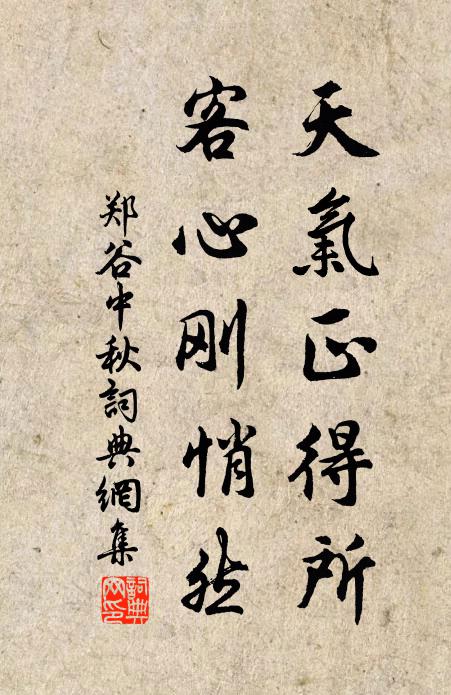 天氣正得所
客心刚悄然
郑谷中秋詞典網集
詞典
网印